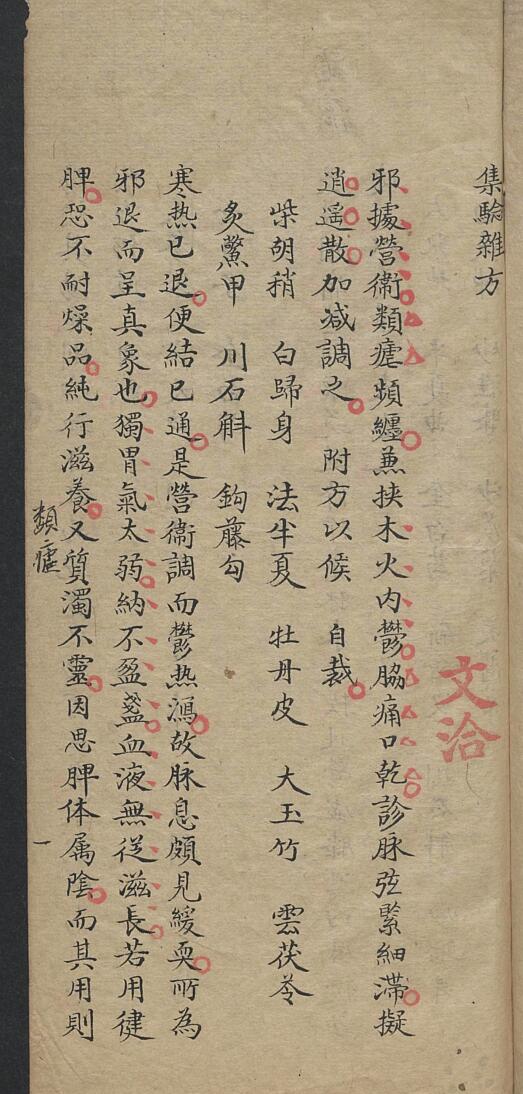 集騐雜方
邪據營衛類瘧頻纏兼挾木火内鬱脇痛口乾診脉弦緊細滯擬
逍遥散加減調之 附方以候 自裁
柴胡稍 白歸身 法半夏 牡丹皮 大玉竹 雲茯苓
炙鱉甲 川石斛 鈎藤勾
寒热已退便結已通是營衛調而鬱热瀉故脉息頗見緩耎所為
邪退而呈真象也獨胃氣太弱納不盈盞血液無從滋長若用健
脾恐不耐燥品純行滋養又質濁不靈因思脾体属陰而其用則
類瘧
一
文洽